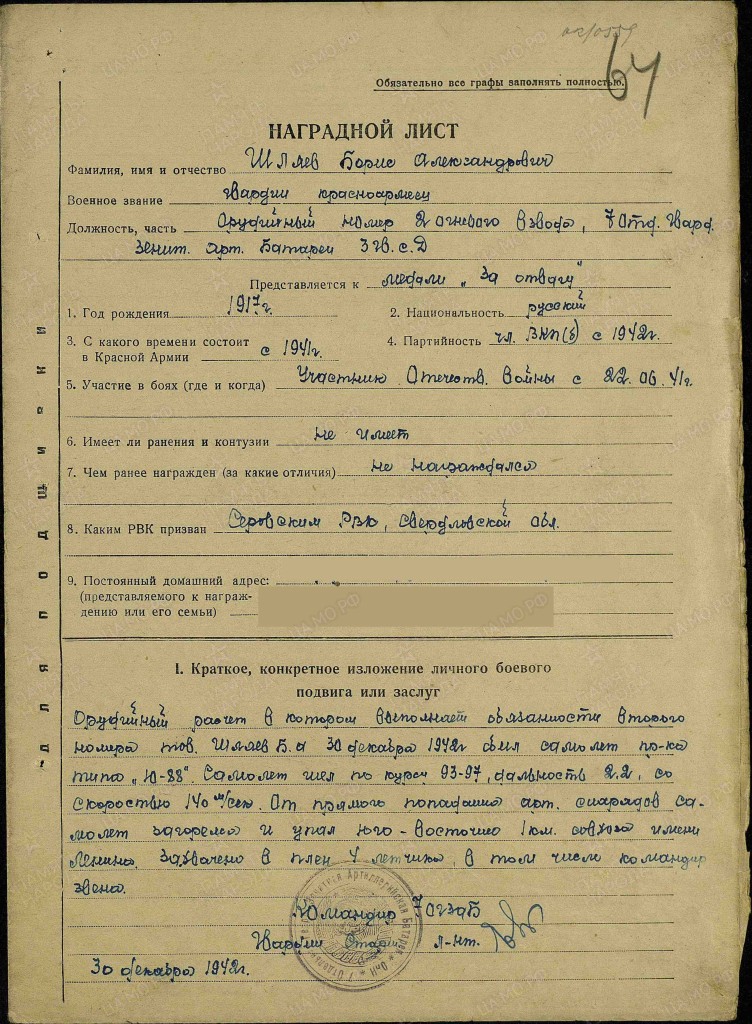 Обязательно все графы заполнять полностью.
64
НАГРАДНОЙ ЛИСТ
Фамилия, имя и отчество Шляев Борис Александрович
Военное звание гвардии красноармеец
Должность, часть Орудийный номер 2 огневого взвода, 7 Отд. Гвард.
Зенит. арт. Батареи 3 гв. с. Д
Представляется к медали „За отвагу"
1. Год рождения 1917г. 2. Национальность русский
3. С какого времени состоит в Красной Армии с 1941г. 4. Партийность чл. ВКП(б) с 1942г.
5. Участие в боях (где и когда) Участник Отечеств. войны с 22.06.41г.
6. Имеет ли ранения и контузии не имеет
7. Чем ранее награжден (за какие отличия) не награждался
8. Каким РВК призван Серовским РВК, Свердловской обл.
9. Постоянный домашний адрес:
(представляемого к награж-
дению или его семьи)
Для подшивки
I. Краткое, конкретное изложение личного боевого
подвига или заслуг
Орудийный расчет в котором выполняет обязанности второго
номера тов. Шляев Б.а 30 декабря 1942г сбил самолет пр-ка
типа „Ю-88". Самолет шел по курсу 93-97, дальность 2,2, со
скоростью 140 м/сек. От прямого попадания арт. снарядов са-
молет загорелся и упал юго-восточно 1 км. совхоза имени
Ленина. Захвачено в плен 4 летчика, в том числе командир
звена.
Командир 7 ОГЗАБ
Гвардии Старш. л-нт.
30 декабря 1942г.
ЦАМО.РФ